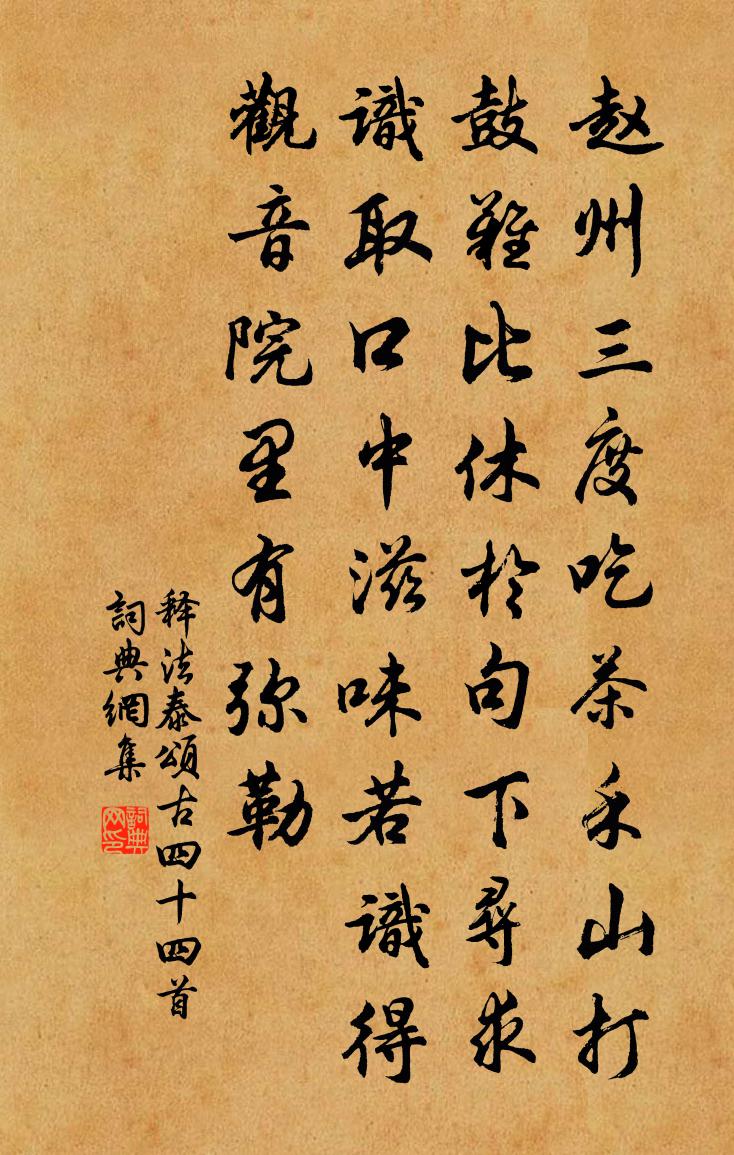 赵州三度吃茶禾山打
鼓難比休於句下尋求
識取口中滋味若識得
觀音院里有弥勒
释法泰頌古四十四首
詞典網集
詞典网印